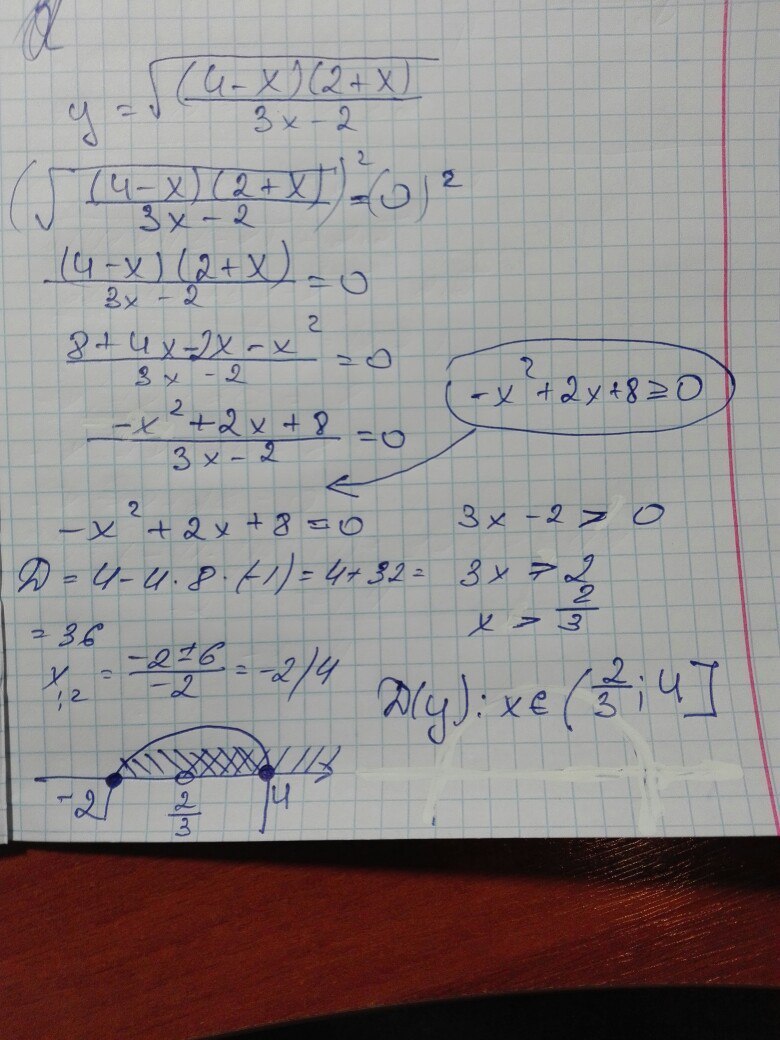 y = √((4-x)(2+x)/(3x-2))
(√((4-x)(2+x)/(3x-2)))² = (0)²
(4-x)(2+x)/(3x-2) = 0
(8+4x-2x-x²)/(3x-2) = 0
-x²+2x+8 ≥ 0
(-x²+2x+8)/(3x-2) = 0
-x²+2x+8=0
3x-2 > 0
D = 4-4·8·(-1) = 4+32 =
3x > 2
= 36
x > 2/3
x₁,₂ = (-2±6)/(-2) = -2/4
D(y): x∈(2/3; 4]
-2 2/3 4